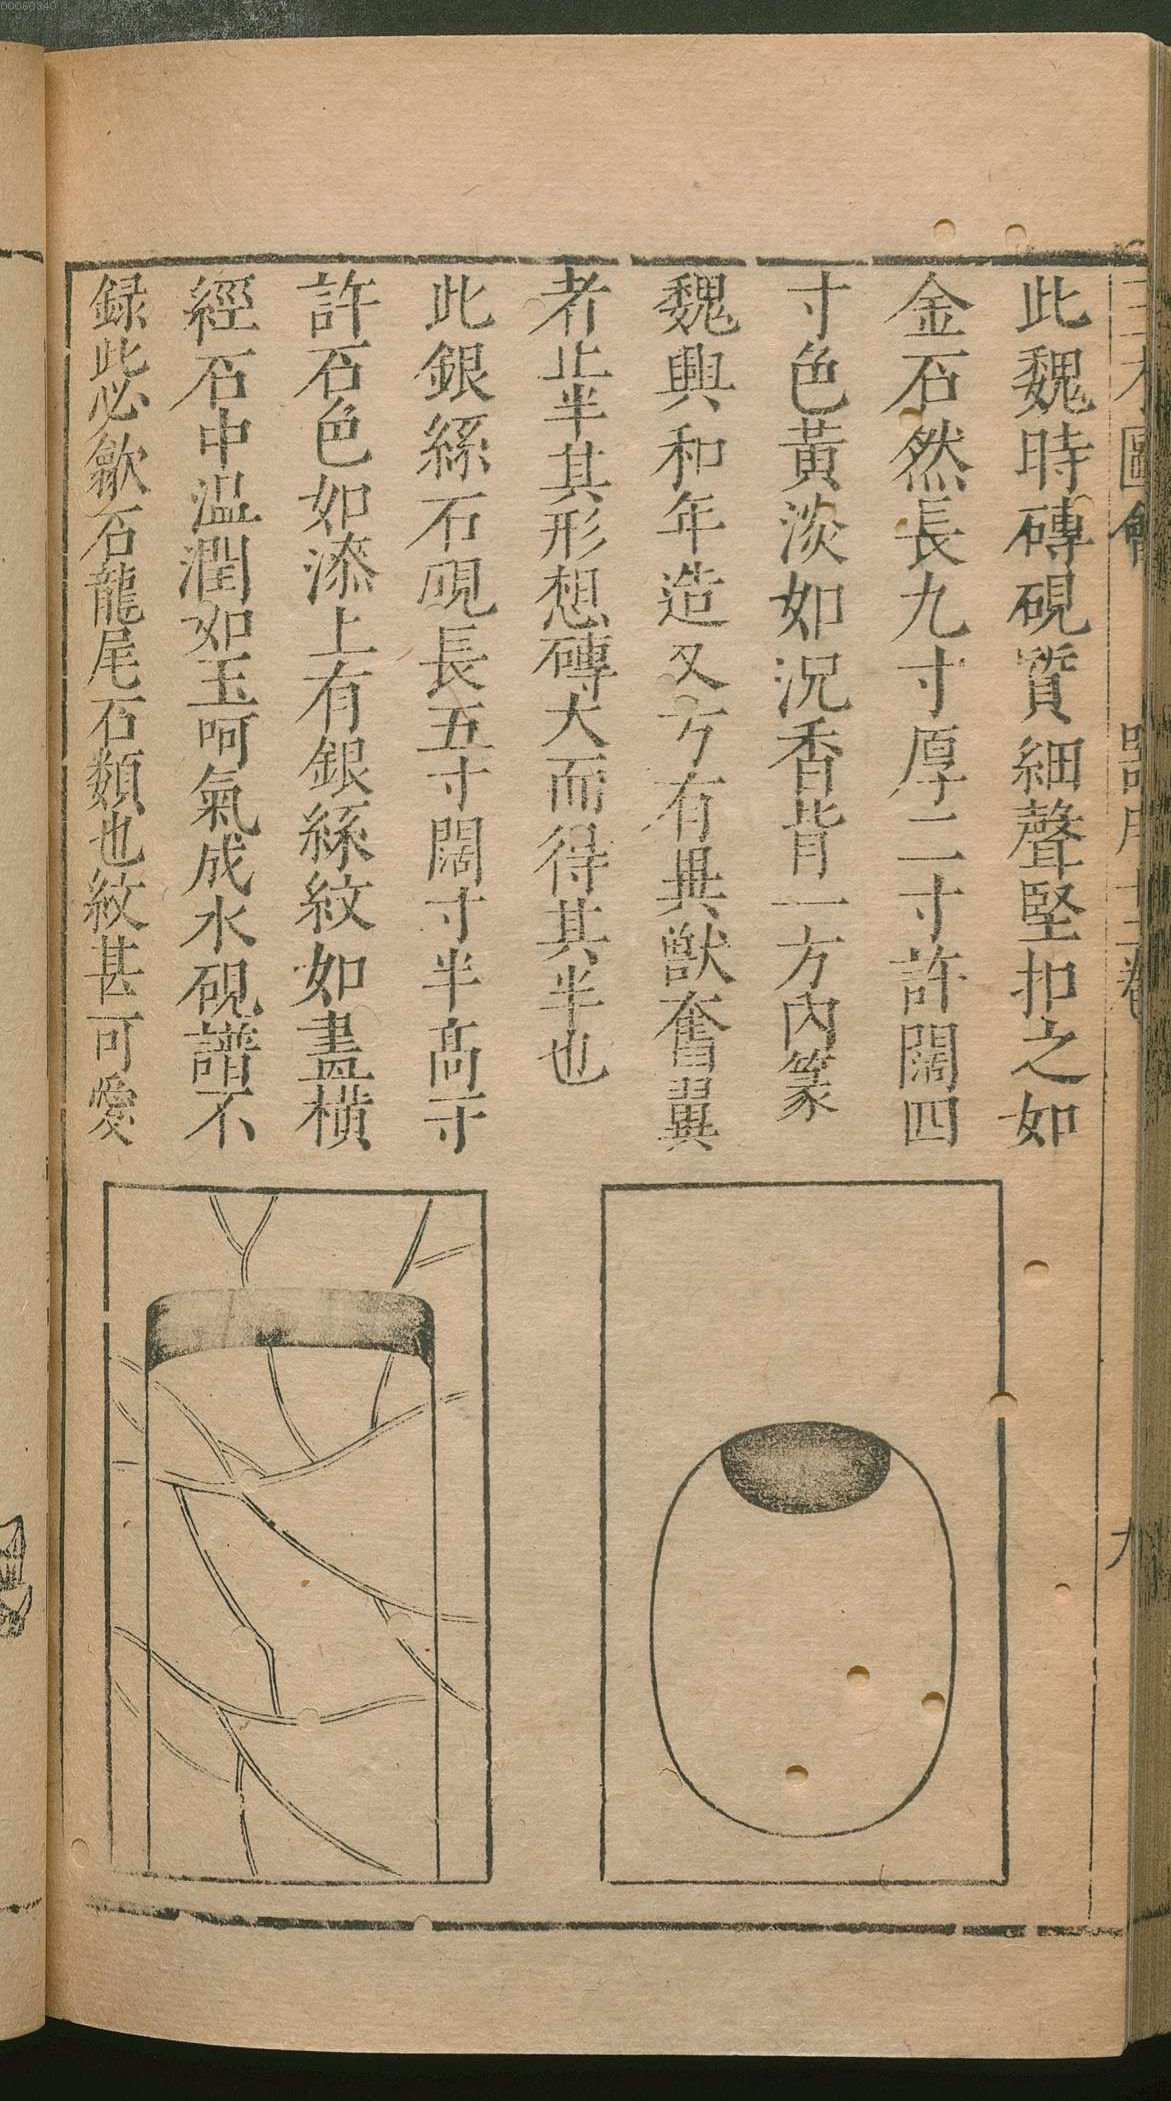 00060340
此魏時磚硯質細聲堅扣之如
金石然長九寸厚二寸許闊四
寸色黃淡如況香背一方內篆
魏興和年造又方有異獸奮翼
者止半其形想磚大而得其半也
此銀絲石硯長五寸闊寸半高寸
許石色如漆上有銀絲紋如畫橫
經石中温潤如玉呵氣成水硯譜不
録此必歙石龍尾石類也紋甚可愛